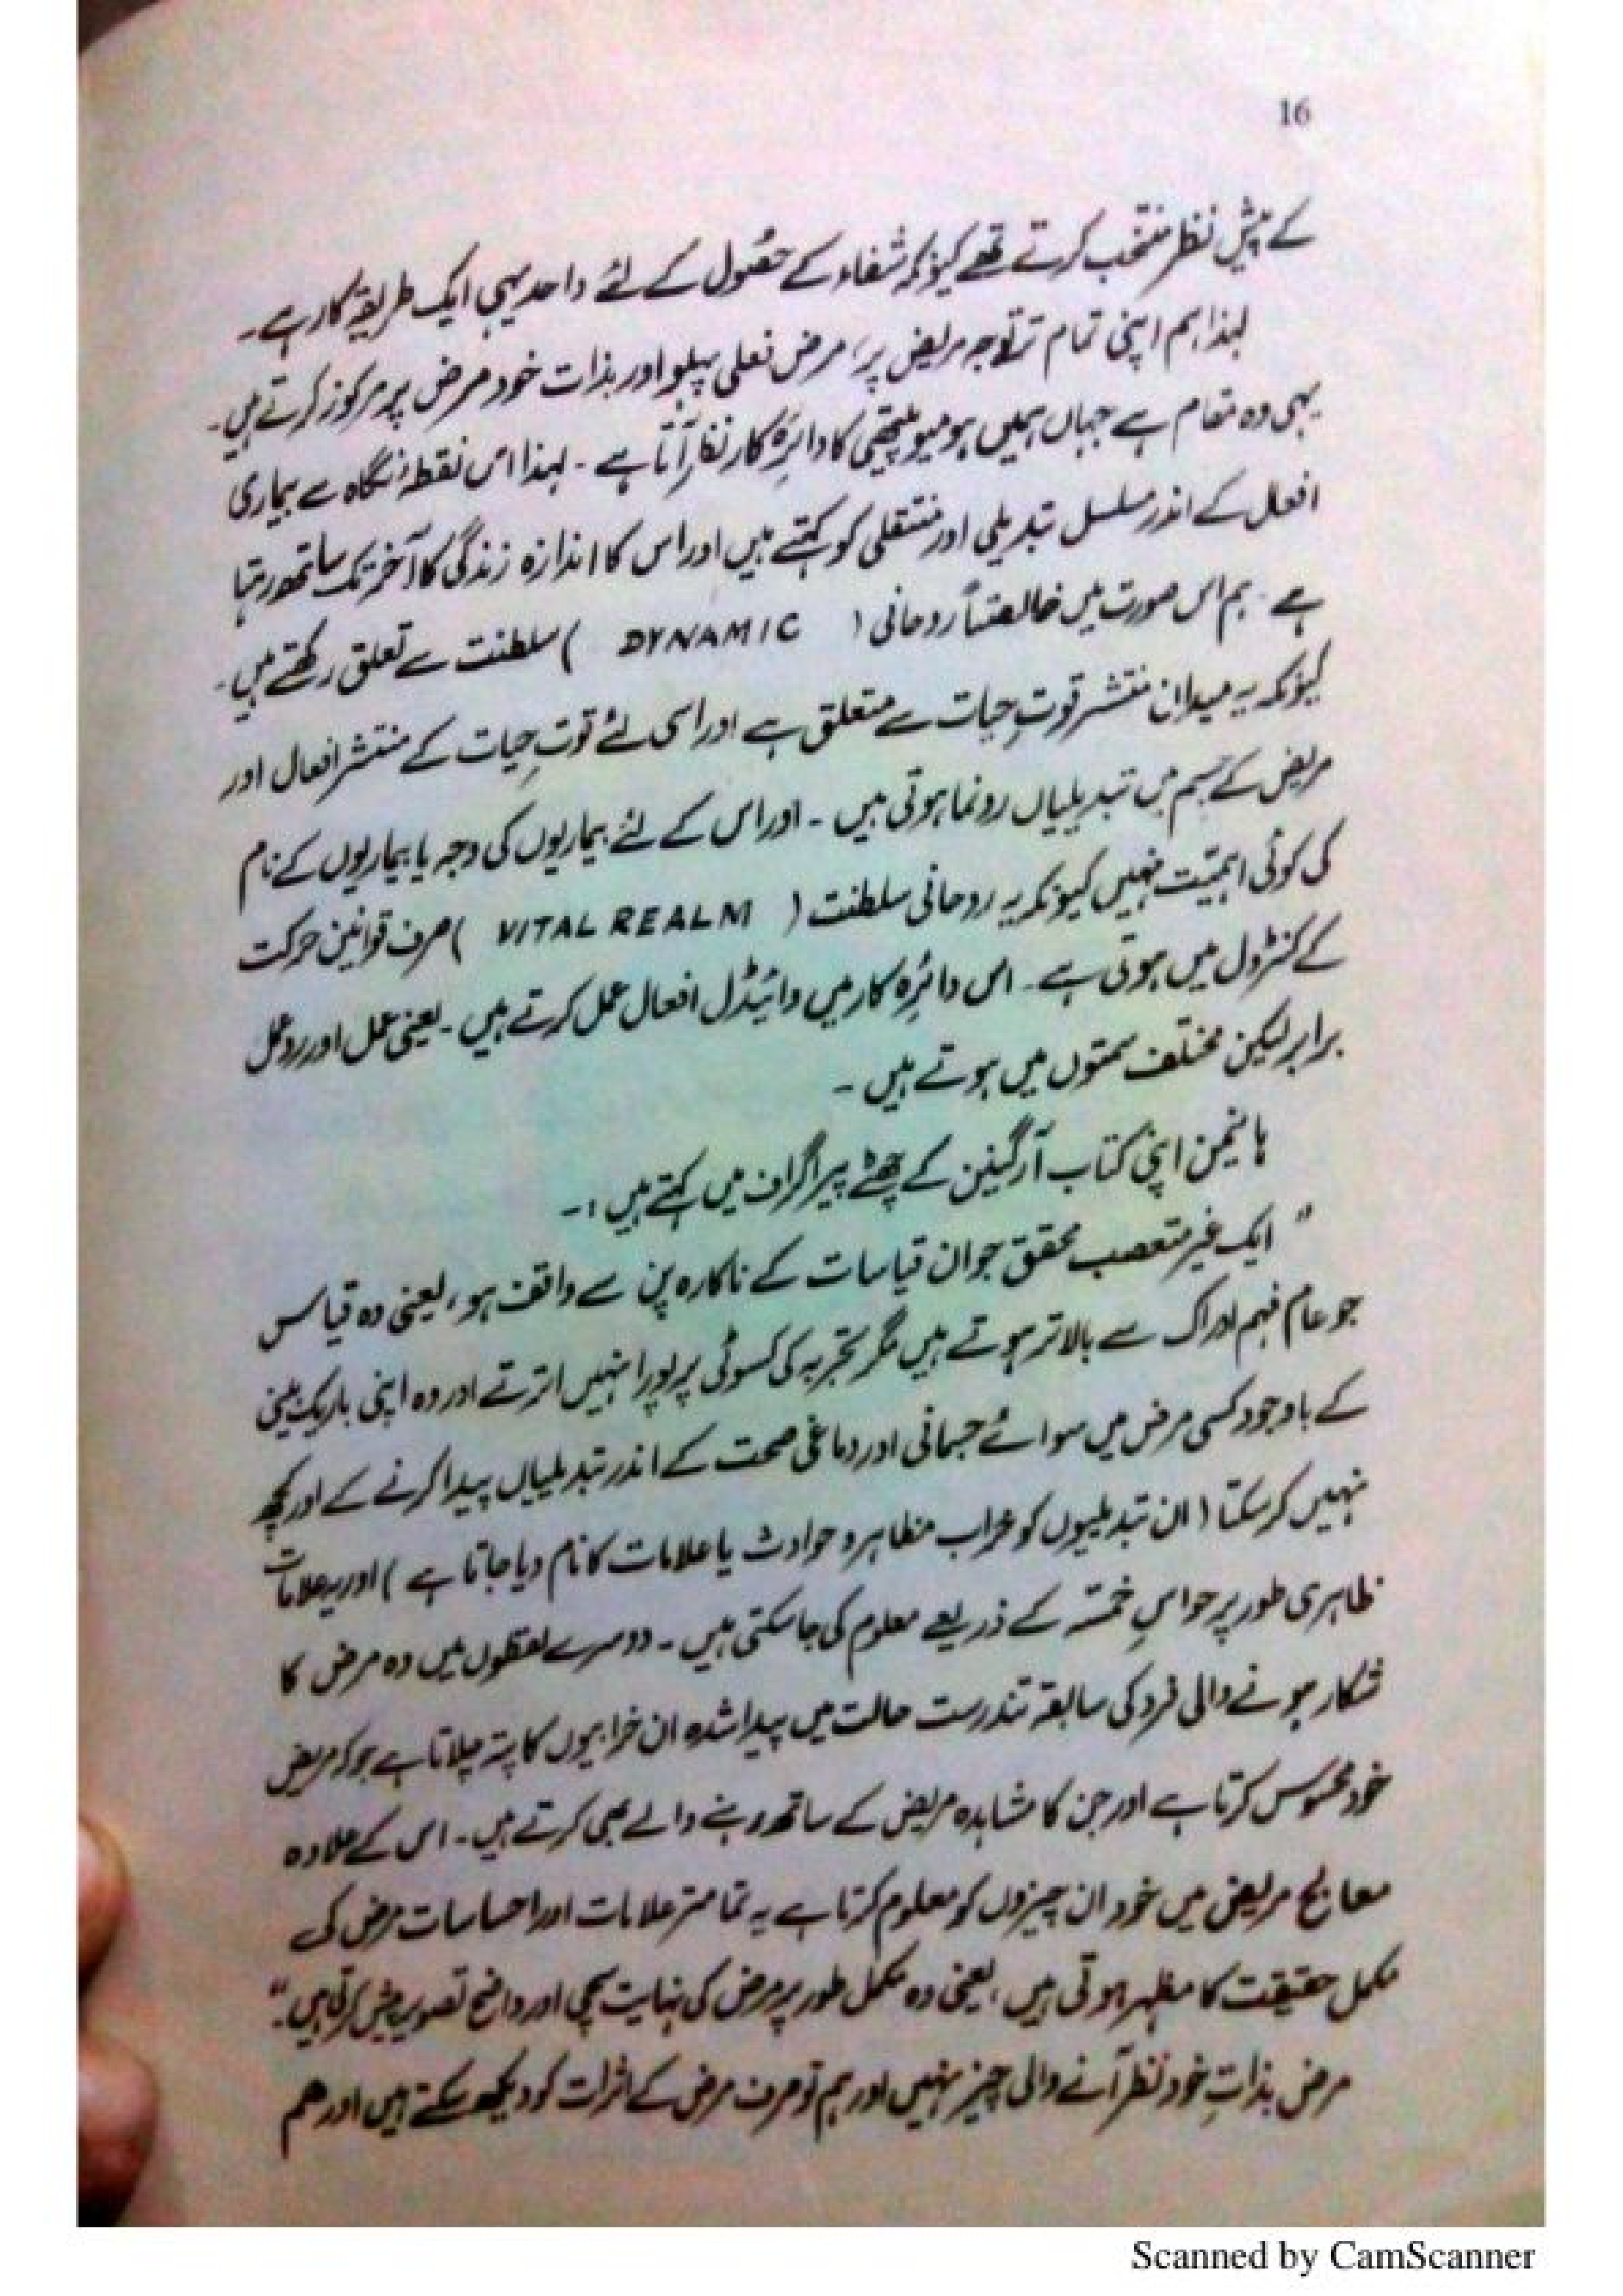 16
کے پیش نظر منتخب کرتے تھے کیونکہ شفاء کے حصُول کے لئے واحد یہی ایک طریقۂ کار ہے۔
لہذا ہم اپنی تمام تر توجہ مریض پر، مرض فعلی پہلو اور بذات خود مرض پر مرکوز کرتے ہیں۔
یہی وہ مقام ہے جہاں ہمیں ہومیوپیتھی کا دائرہ کار نظر آتا ہے ۔ لہذا اس نقطۂ نگاہ سے بیماری
افعال کے اندر مسلسل تبدیلی اور منتقلی کو کہتے ہیں اور اس کا اندازہ زندگی کا آخر تک ساتھ رہتا
ہے ۔ ہم اس صورت میں خالصتاً روحانی ( DYNAMIC ) سلطنت سے تعلق رکھتے ہیں۔
کیونکہ یہ میدان منتشر قوتِ حیات سے متعلق ہے اور اسی لئے قوتِ حیات کے منتشر افعال اور
مریض کے جسم میں تبدیلیاں رونما ہوتی ہیں ۔ اور اس کے لئے بیماریوں کی وجہ یا بیماریوں کے نام
کی کوئی اہمیّت نہیں کیونکہ یہ روحانی سلطنت ( VITAL REALM ) صرف قوانین حرکت
کے کنٹرول میں ہوتی ہے ۔ اس دائرہ کار میں وائیڈل افعال عمل کرتے ہیں ۔ یعنی عمل اور ردِ عمل
برابر لیکن مختلف سمتوں میں ہوتے ہیں ۔
ہانیمن اپنی کتاب آرگینن کے چھٹے پیراگراف میں کہتے ہیں :۔
" ایک غیر متعصب محقق جو ان قیاسات کے ناکارہ پن سے واقف ہو، یعنی وہ قیاس
جو عام فہم ادراک سے بالاتر ہوتے ہیں مگر تجربہ کی کسوٹی پر پورا نہیں اترتے اور وہ اپنی باریک بینی
کے باوجود کسی مرض میں سوائے جسمانی اور دماغی صحت کے اندر تبدیلیاں پیدا کرنے کے اور کچھ
نہیں کر سکتا ( ان تبدیلیوں کو خراب مظاہر و حوادث یا علامات کا نام دیا جاتا ہے ) اور یہ علامات
ظاہری طور پر حواسِ خمسہ کے ذریعے معلوم کی جا سکتی ہیں ۔ دوسرے لفظوں میں وہ مرض کا
شکار ہونے والی فرد کی سابقہ تندرست حالت میں پیدا شدہ ان خرابیوں کا پتہ چلاتا ہے جو کہ مریض
خود محسوس کرتا ہے اور جن کا مشاہدہ مریض کے ساتھ رہنے والے بھی کرتے ہیں ۔ اس کے علاوہ
معالج مریض میں خود ان چیزوں کو معلوم کرتا ہے یہ تمام تر علامات اور احساسات مرض کی
مکمل حقیقت کا مظہر ہوتی ہیں ، یعنی وہ مکمل طور پر مرض کی نہایت سچی اور واضح تصویر پیش کرتی ہیں۔"
مرض بذاتِ خود نظر آنے والی چیز نہیں اور ہم تو صرف مرض کے اثرات کو دیکھ سکتے ہیں اور ھم
Scanned by CamScanner